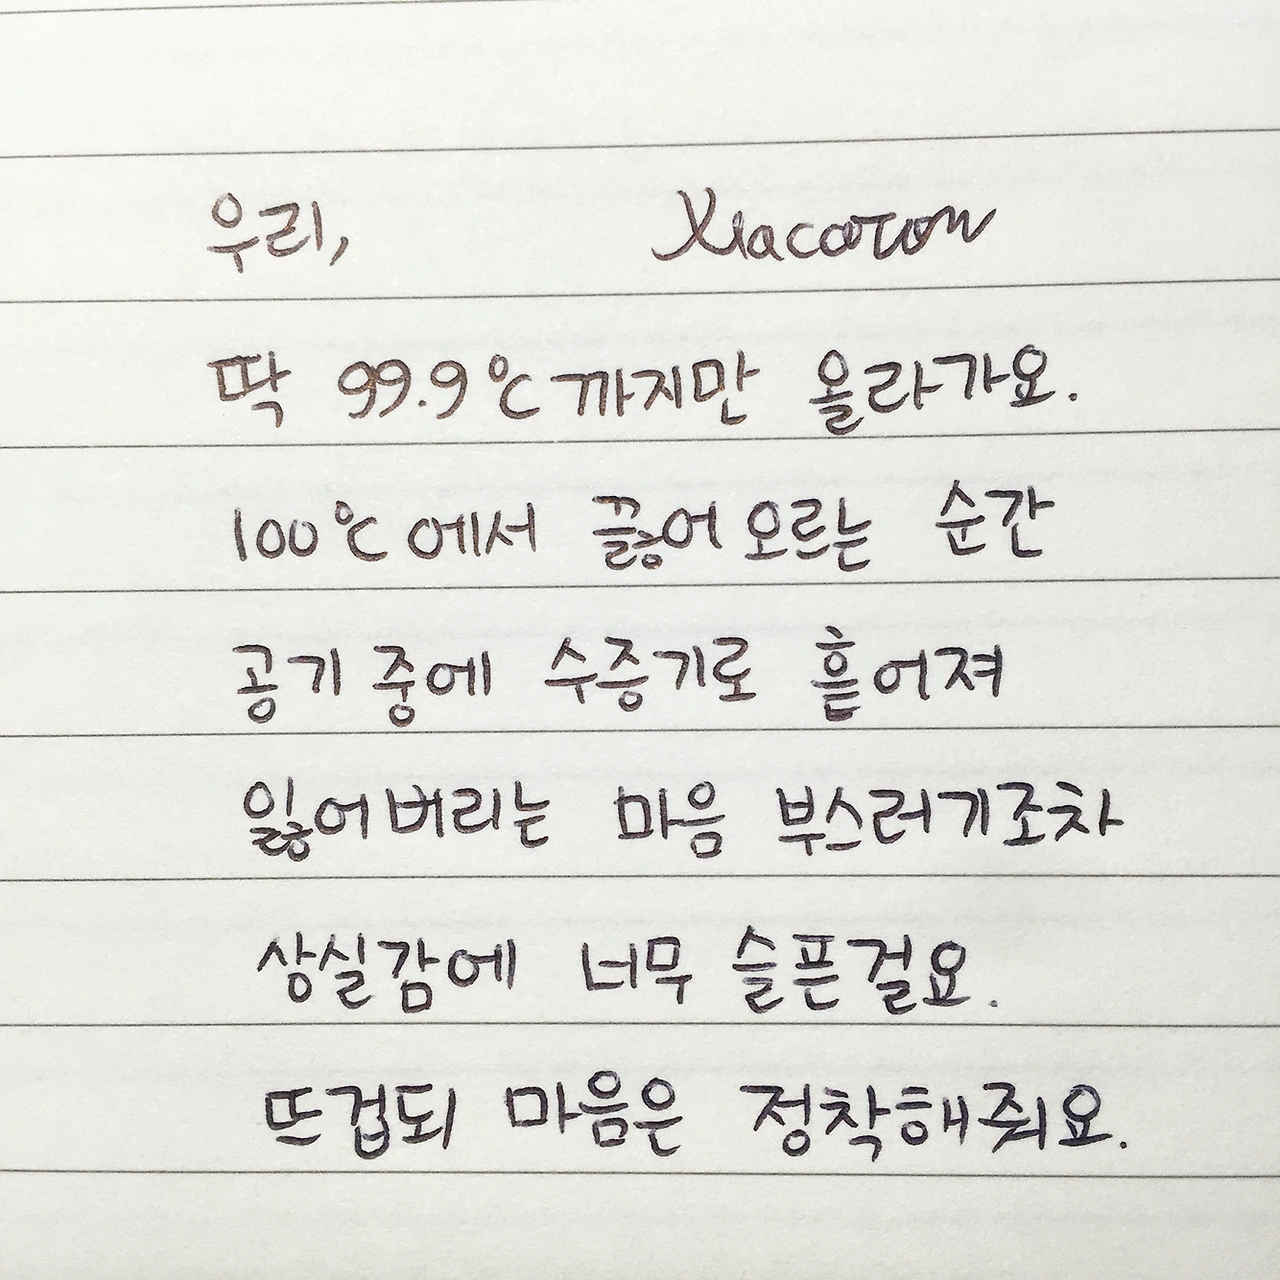 우리, Xiacaron
딱 99.9℃까지만 올라가요.
100℃에서 끓어오르는 순간
공기 중에 수증기로 흩어져
잃어버리는 마음 부스러기조차
상실감에 너무 슬픈걸요.
뜨겁되 마음은 정착해줘요.